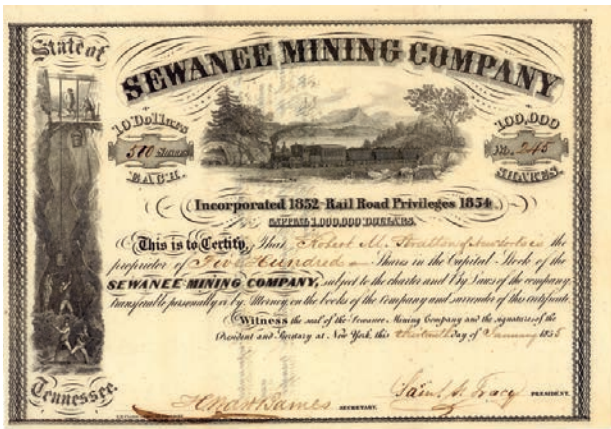 State of
SEWANEE MINING COMPANY
10 Dollars
500 Shares
EACH.
100,000
No. 245
SHARES.
Incorporated 1852 Rail Road Privileges 1854
CAPITAL 1,000,000 DOLLARS.
This is to Certify, That Robert M. Stratton of New York is the
proprietor of Five Hundred Shares in the Capital Stock of the
SEWANEE MINING COMPANY, subject to the charter and By Laws of the company.
Transferable personally or by Attorney, on the books of the Company and surrender of this certificate.
Witness the seal of the Sewanee Mining Company and the signatures of the
President and Secretary at New York, this day of January 1855
Tennessee.
SECRETARY.
Saml. F. Tracy PRESIDENT.